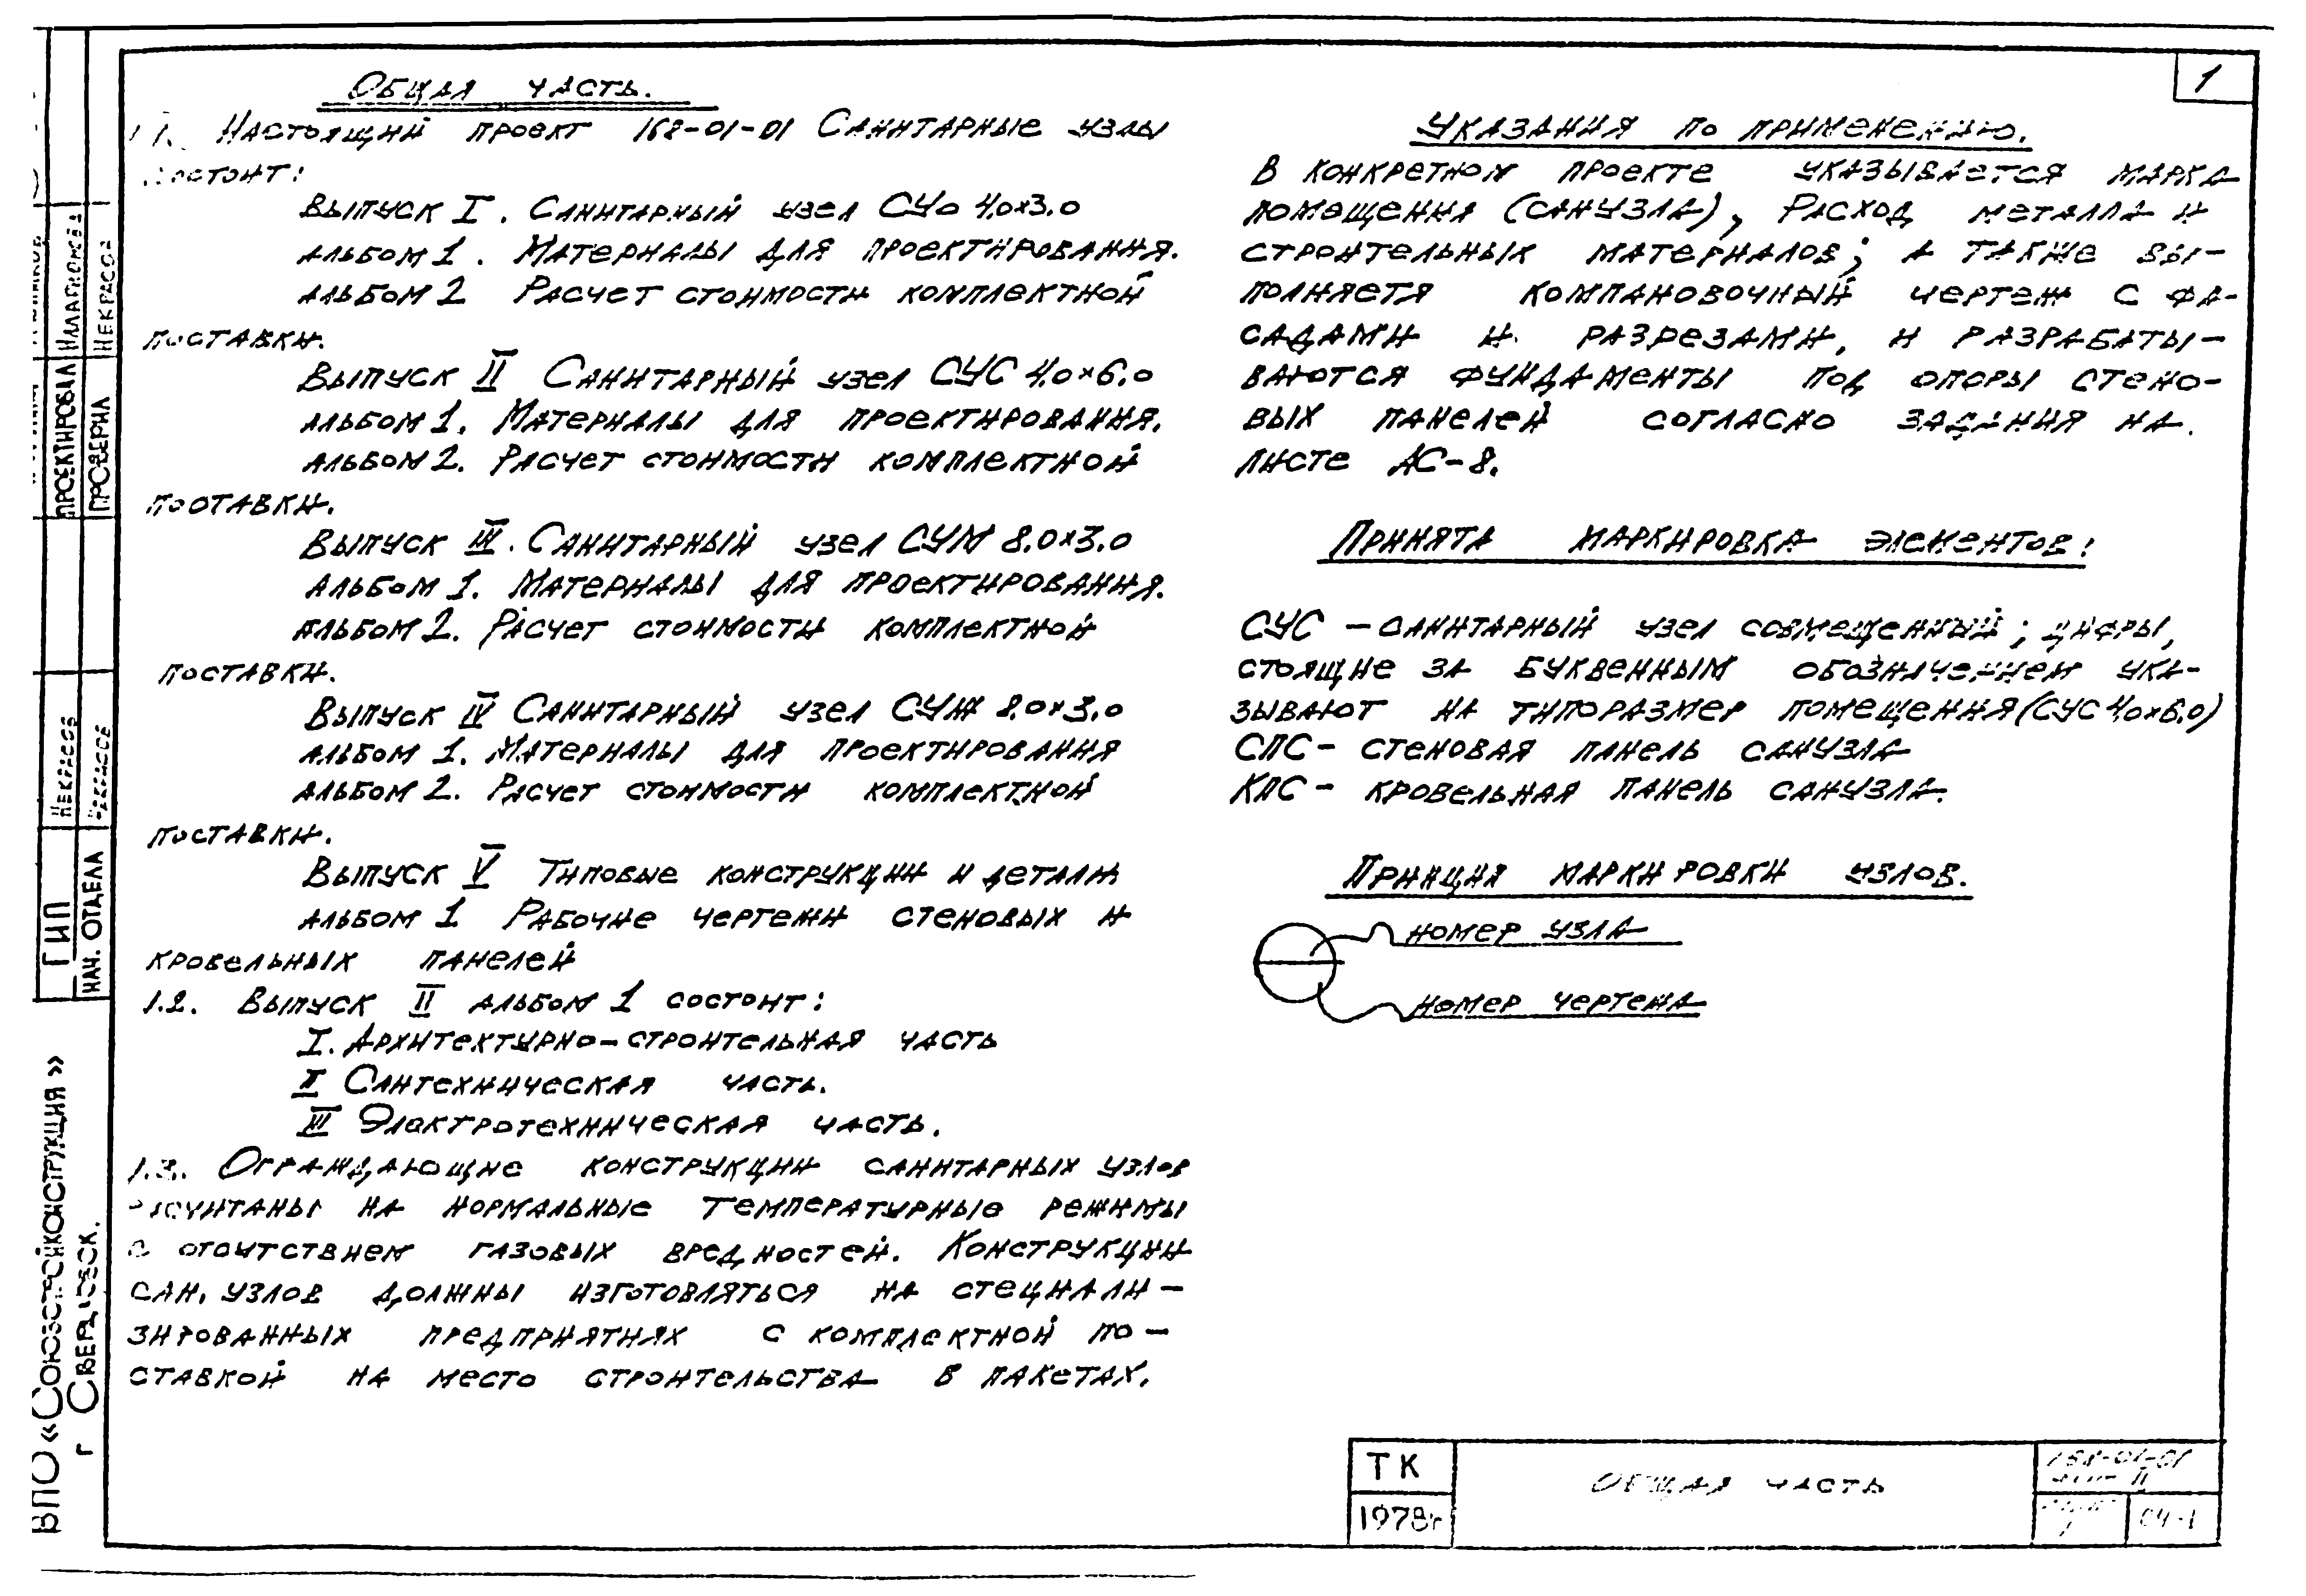 Общая часть.
1.1. Настоящий проект 168-01-01 Санитарные узлы
состоит:
Выпуск I. Санитарный узел СУо 4.0×3.0
альбом 1. Материалы для проектирования.
альбом 2 Расчет стоимости комплектной
поставки.
Выпуск II Санитарный узел СУС 4.0×6.0
альбом 1. Материалы для проектирования.
альбом 2. Расчет стоимости комплектной
поставки.
Выпуск III. Санитарный узел СУМ 8.0×3.0
альбом 1. Материалы для проектирования.
альбом 2. Расчет стоимости комплектной
поставки.
Выпуск IV Санитарный узел СУЖ 8.0×3.0
альбом 1. Материалы для проектирования
альбом 2. Расчет стоимости комплектной
поставки.
Выпуск V Типовые конструкции и детали
альбом 1 Рабочие чертежи стеновых и
кровельных панелей
1.2. Выпуск II альбом 1 состоит:
I. Архитектурно-строительная часть
II Сантехническая часть.
III Электротехническая часть.
1.3. Ограждающие конструкции санитарных узлов
расчитаны на нормальные температурные режимы
с отсутствием газовых вредностей. Конструкции
сан. узлов должны изготовляться на специали-
зированных предприятиях с комплектной по-
ставкой на место строительства в пакетах.
1
Указания по применению.
В конкретном проекте указывается марка
помещения (санузла), Расход металла и
строительных материалов; а также вы-
полняетя компановочный чертеж с фа-
садами и разрезами, и разрабаты-
ваются фундаменты под опоры стено-
вых панелей согласно задания на
листе АС-8.
Принята маркировка элементов:
СУС – санитарный узел совмещенный; цифры,
стоящие за буквенным обозначением ука-
зывают на типоразмер помещения (СУС 4,0×6.0)
СПС – стеновая панель санузла
КПС – кровельная панель санузла.
Принцип маркировки узлов.
номер узла
номер чертежа
ПРОЕКТИРОВАЛ
ПРОВЕРИЛ НЕКРАСОВ
ГИП НЕКРАСОВ
НАЧ. ОТДЕЛА
ВПО «СОЮЗСТРОЙКОНСТРУКЦИЯ»
г СВЕРДЛОВСК.
ТК
1978г
Общая часть
168-01-01
вып II
1
ОЧ-1